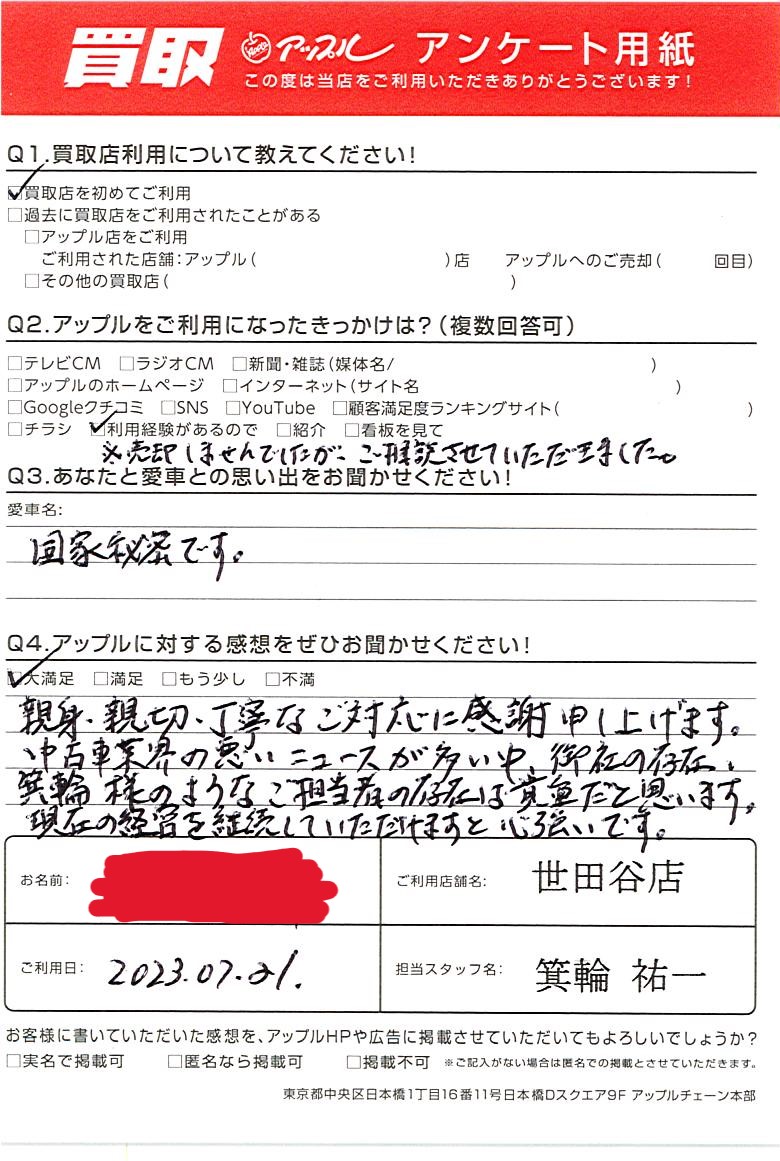 買取 Apple アップル アンケート用紙
この度は当店をご利用いただきありがとうございます!
Q1.買取店利用について教えてください!
☑買取店を初めてご利用
□過去に買取店をご利用されたことがある
□アップル店をご利用
ご利用された店舗:アップル( )店 アップルへのご売却( 回目)
□その他の買取店( )
Q2.アップルをご利用になったきっかけは?(複数回答可)
□テレビCM □ラジオCM □新聞・雑誌(媒体名/ )
□アップルのホームページ □インターネット(サイト名 )
□Googleクチコミ □SNS □YouTube □顧客満足度ランキングサイト( )
□チラシ ☑利用経験があるので □紹介 □看板を見て
※売却しませんでしたが、ご相談させていただきました。
Q3.あなたと愛車との思い出をお聞かせください!
愛車名:
国家秘密です。
Q4.アップルに対する感想をぜひお聞かせください!
☑大満足 □満足 □もう少し □不満
親身・親切・丁寧なご対応に感謝申し上げます。
中古車業界の悪いニュースが多い中、御社の存在、
箕輪様のようなご担当者の存在は貴重だと思います。
現在の経営を継続していただけますと心強いです。
お名前: ご利用店舗名: 世田谷店
ご利用日: 2023.07.21. 担当スタッフ名: 箕輪 祐一
お客様に書いていただいた感想を、アップルHPや広告に掲載させていただいてもよろしいでしょうか?
□実名で掲載可 □匿名なら掲載可 □掲載不可 ※ご記入がない場合は匿名での掲載とさせていただきます。
東京都中央区日本橋1丁目16番11号日本橋Dスクエア9F アップルチェーン本部